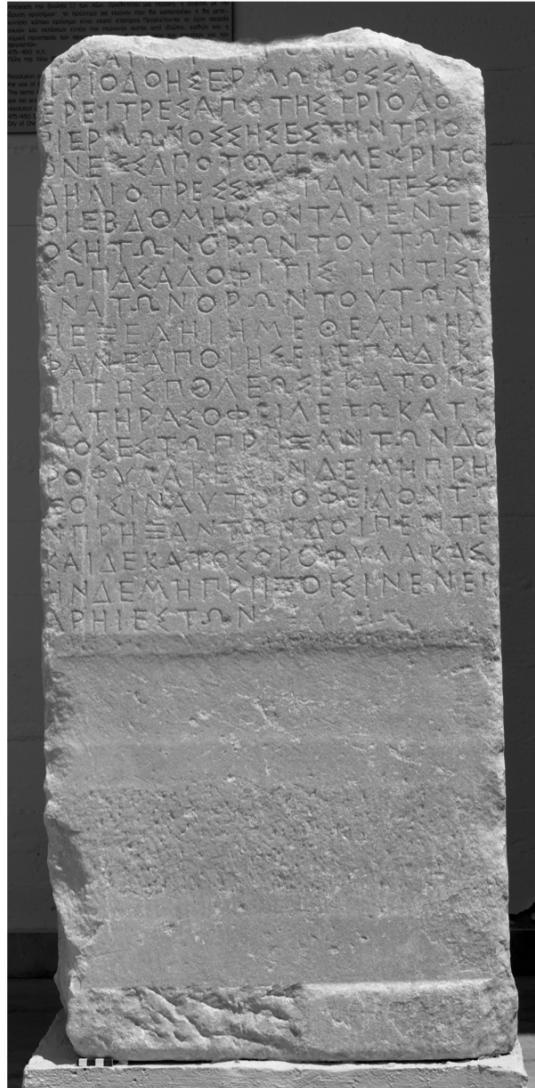 ΤΡΙΟΔΟΗΣΕΡΜΩΝΟΣΣΑ
ΕΡΕΙΤΡΕΣΑΠΟΤΗΣΤΡΙΟΔΟ
ΡΙΕΡΜΩΝΟΣΣΗΣΕΣΤΗΝΤΡΙΟ
ΟΝΕΞΣΑΠΟΤΟΥΤΟΜΕΧΡΙΤΟ
ΔΗΛΙΟΤΡΕΣΣΥΝΠΑΝΤΕΣΟ
ΟΙΕΒΔΟΜΗΚΟΝΤΑΠΕΝΤΕ
ΟΣΗΤΩΝΟΡΩΝΤΟΥΤΩΝΕ
ΣΩΠΑΣΑΔΟΦΙΤΙΣΗΝΤΙΣΤ
ΙΝΑΤΩΝΟΡΩΝΤΟΥΤΩΝ
ΗΕΞΕΛΗΙΗΜΕΘΕΛΗΙΗΑ
ΦΑΝΕΑΠΟΙΗΣΕΙΕΠΑΔΙΚ
ΙΙΤΗΣΠΟΛΕΩΣΕΚΑΤΟΝΣ
ΤΑΤΗΡΑΣΟΦΕΙΛΕΤΩΚΑΤΙ
ΜΟΣΕΣΤΩΠΡΗΞΑΝΤΩΝΔΟ
ΡΟΦΥΛΑΚΕΣΗΝΔΕΜΗΠΡΗ
ΞΟΙΣΙΝΑΥΤΟΙΟΦΕΙΛΟΝΤΩ
ΝΠΡΗΞΑΝΤΩΝΔΟΙΠΕΝΤΕ
ΚΑΙΔΕΚΑΤΟΣΟΡΟΦΥΛΑΚΑΣ
ΗΝΔΕΜΗΠΡΗΞΟΙΣΙΝΕΝΕΠ
ΑΡΗΙΕΣΤΩΝ